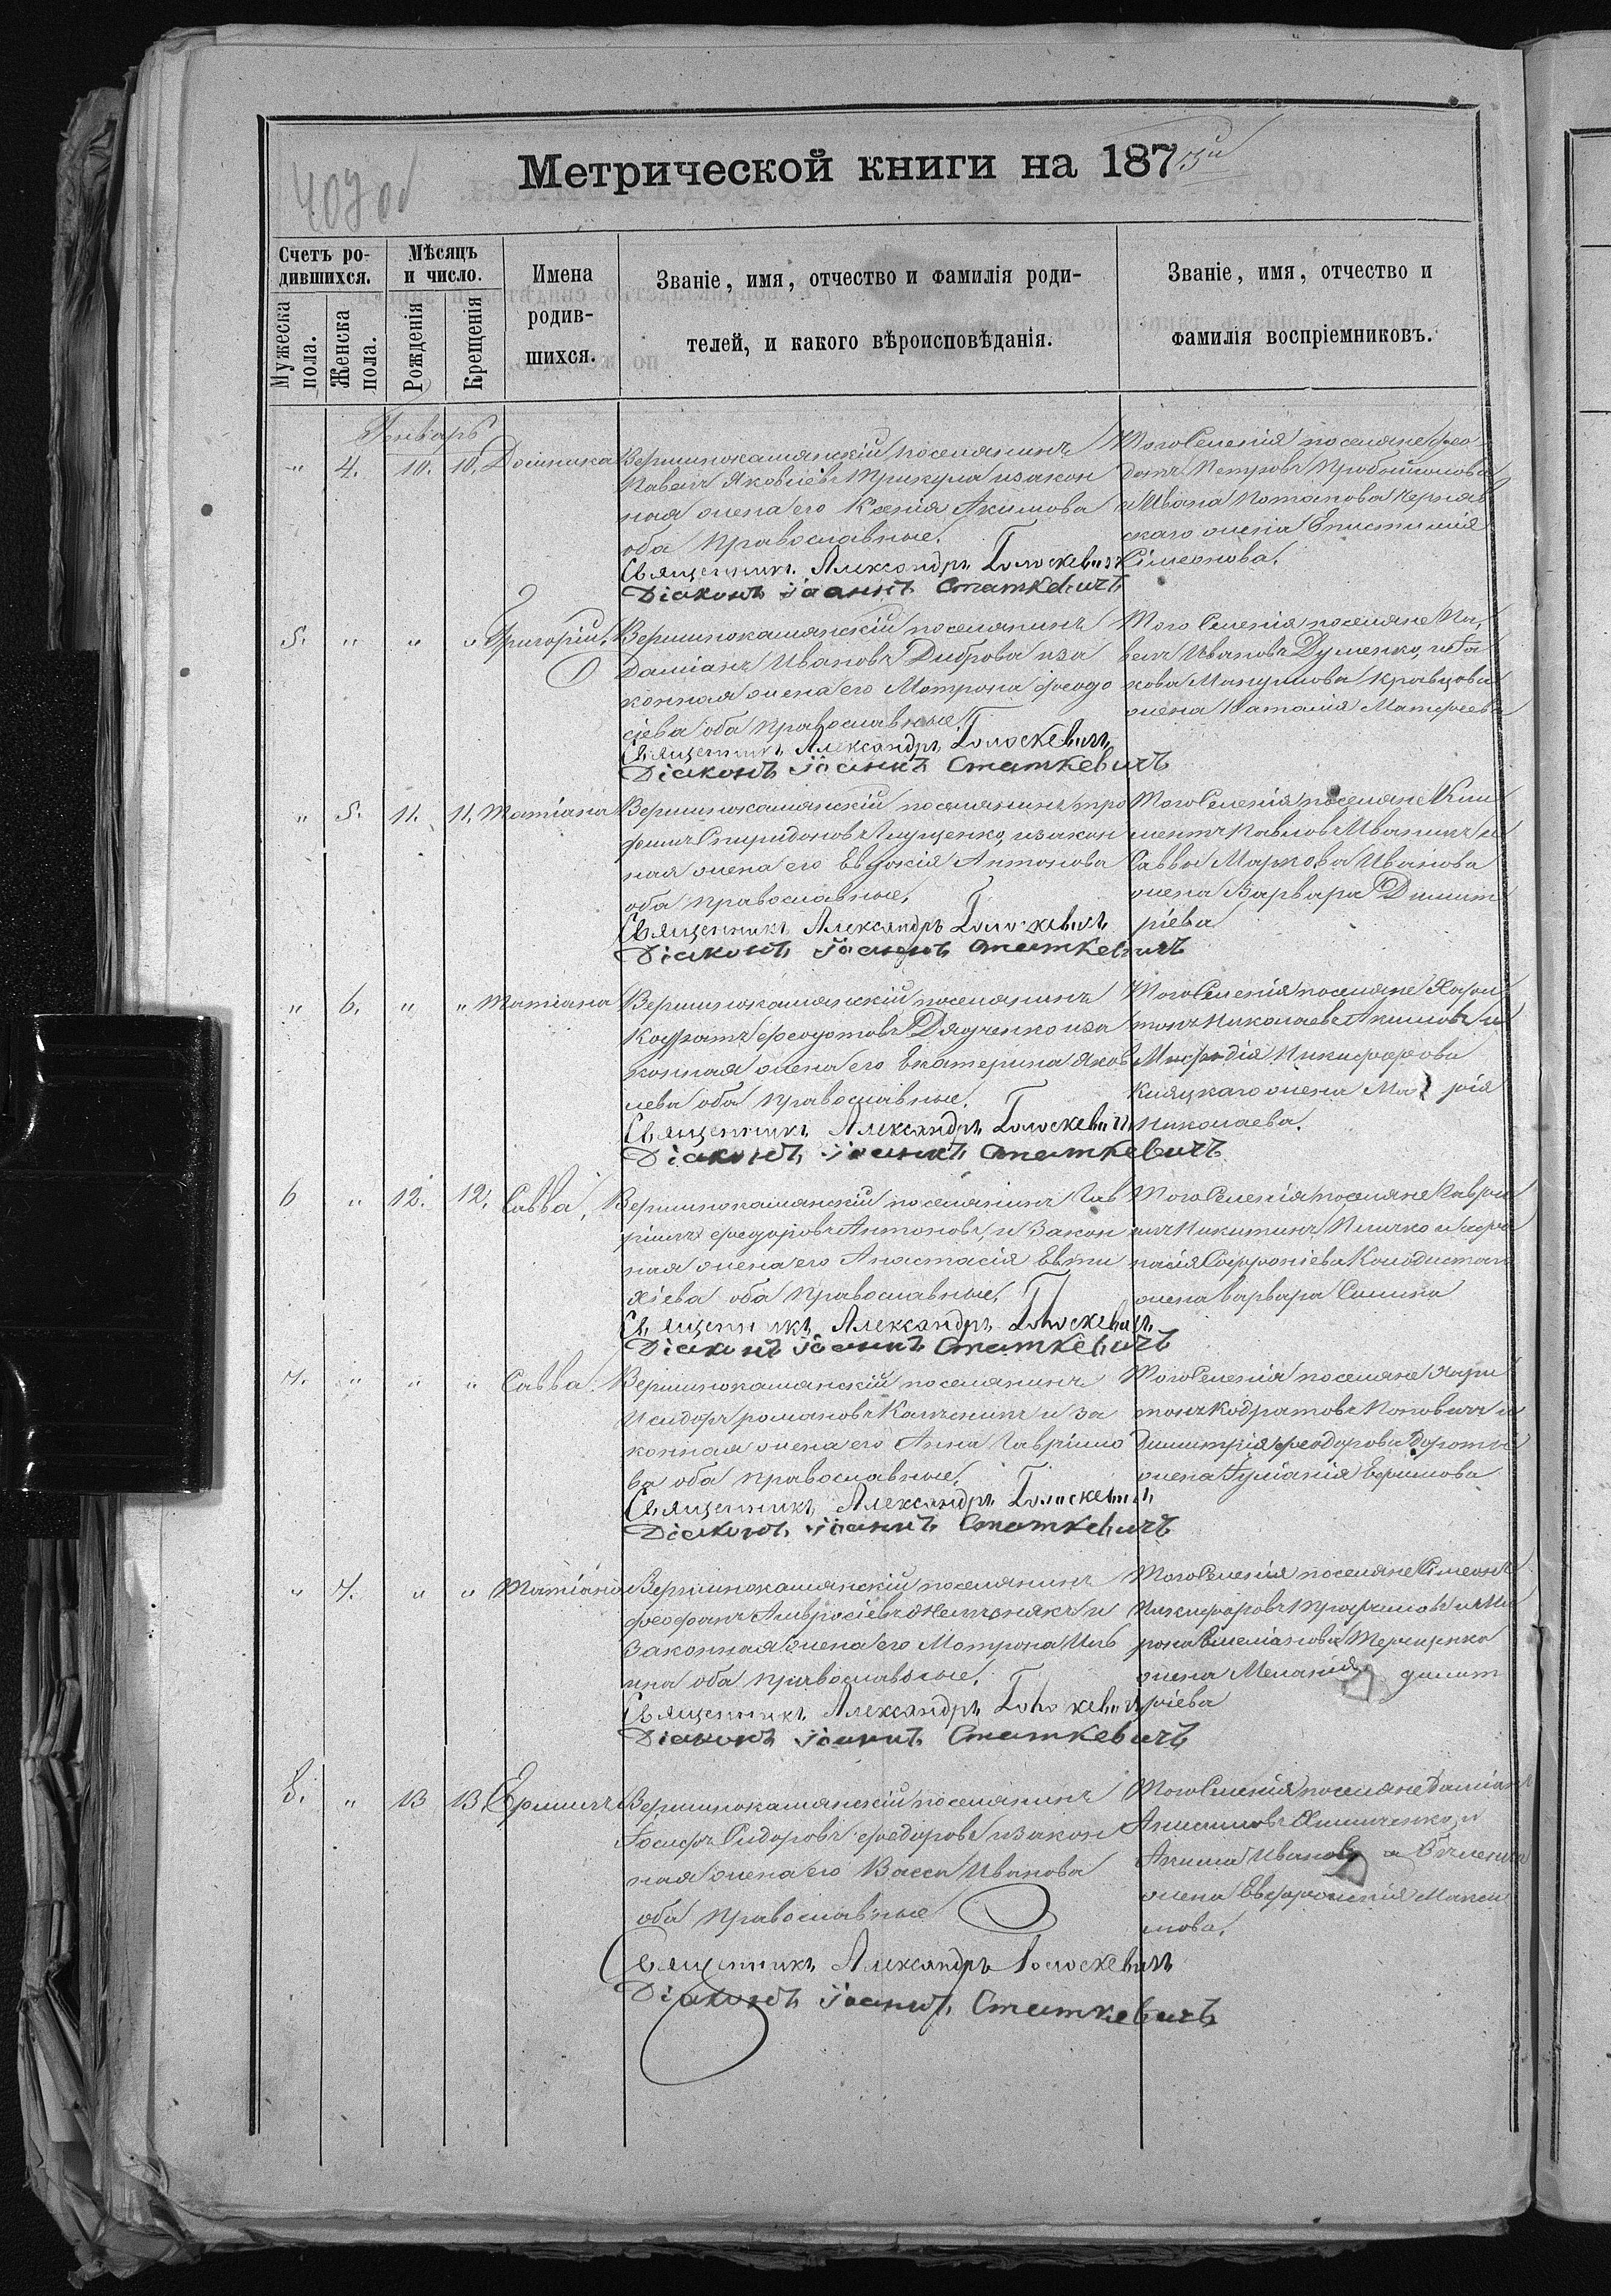 409 об
Метрической книги на 1875й
Счетъ ро-
дившихся.
Мужеска
пола.
Женска
пола.
Мѣсяцъ
и число.
Рожденія
Крещенія
Имена
родив-
шихся.
Званіе, имя, отчество и фамилія роди-
телей, и какого вѣроисповѣданія.
Званіе, имя, отчество и
фамилія воспріемниковъ.
Январь
" 4. 10. 10. Домника
Вершинокаменскій поселянинъ
Павелъ Яковлевъ Прикула и закон
ная жена его Ксенія Акимова
оба православные.
Священникъ Александръ Голоскевичъ
Діаконъ Іоаннъ Статкевичъ
Того Селенія поселяне Фео
дотъ Петровъ
и Ивана Потапова Черняв
скаго жена Епистимія
Сімеонова.
5. " " " Григорій,
Вершинокаменскій поселянинъ
Даміанъ Ивановъ Диброва и за
конная жена его Матрона Феодо
сіева оба православные
Священникъ Александръ Голоскевичъ
Діаконъ Іоаннъ Статкевичъ
Того Селенія поселяне Па,
велъ Ивановъ Думенко, и Іа
кова Мануилова Кравцова
жена Наталія Матфеева
" 5. 11. 11. Татіана
Вершинокаменскій поселянинъ Тро
фимъ Спиридоновъ Глущенко, и закон
ная жена его Евдокія Антонова
оба православные,
Священникъ Александръ Голоскевичъ
Діаконъ Іоаннъ Статкевичъ
Того Селенія поселяне Кли
ментъ Павловъ Иваникъ и
Саввы Маркова Иванова
жена Варвара Димит
ріева
" 6. " " Татіана
Вершинокаменскій поселянинъ
Кодратъ Феодотовъ Дядченко и за
конная жена его Екатерина Яков
лева оба православные.
Священникъ Александръ Голоскевичъ
Діаконъ Іоаннъ Статкевичъ
Того Селенія поселяне Хари
тонъ Николаевъ Акимовъ и
Мефодія Никифорова
Княцкаго жена Марія
Николаева.
6 " 12. 12. Савва,
Вершинокаменскій поселянинъ Гав
ріилъ Феодоровъ Антоновъ, и Закон
ная жена его Анастасія Евти
хіева оба православные,
Священникъ Александръ Голоскевичъ
Діаконъ Іоаннъ Статкевичъ
Того Селенія поселяне Гаврі
илъ Никитинъ Пличко и Афа
насія Софроніева
жена Варвара Савина
7. " " " Савва.
Вершинокаменскій поселянинъ
Исидоръ Романовъ Калѣникъ и за
конная жена его Анна Гавріило
ва оба православные,
Священникъ Александръ Голоскевичъ
Діаконъ Іоаннъ Статкевичъ
Того Селенія поселяне Хари
тонъ Кодратовъ Поповичъ и
Димитрія Феодорова
жена Іуліанія Ефимова
" 7. " " Татіана
Вершинокаменскій поселянинъ
Феофанъ Амвросіевъ и
Законная жена его Матрона Иль
ина оба православные.
Священникъ Александръ Голоскевичъ
Діаконъ Іоаннъ Статкевичъ
Того Селенія поселяне Сімеонъ
Никифоровъ Трофимовъ и Ми
рона Емеліанова
жена Меланія димит
ріева
8. " 13 13. Ермилъ
Вершинокаменскій поселянинъ
Іосифъ Сидоровъ Феодоровъ и закон
ная жена его Васса Иванова
оба православные
Священникъ Александръ Голоскевичъ
Діаконъ Іоаннъ Статкевичъ
Того Селенія поселяне Даміанъ
и
Акима Иванова
жена Евфросинія Макси
мова.